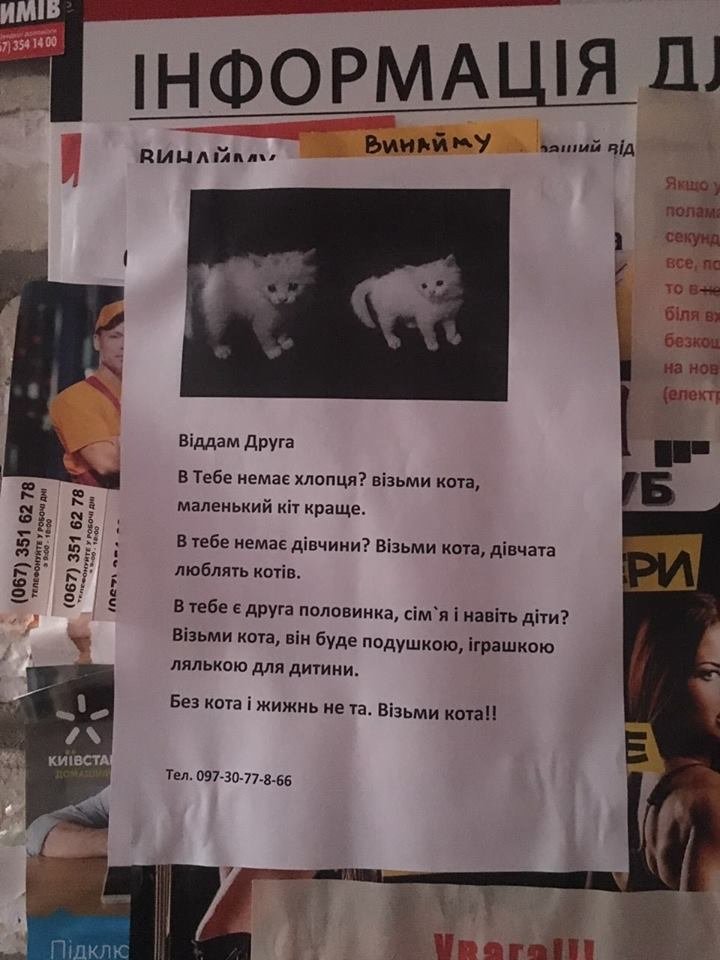 ИМІВ
7) 354 14 00
ІНФОРМАЦІЯ ДЛ
ВИНАЙМУ
ВИНАЙМУ
ращий від
Якщо у
полама
секунд
все, по
то в не
біля вх
безкош
на нов
(електр
Віддам Друга
В Тебе немає хлопця? візьми кота,
маленький кіт краще.
В тебе немає дівчини? Візьми кота, дівчата
люблять котів.
В тебе є друга половинка, сім`я і навіть діти?
Візьми кота, він буде подушкою, іграшкою
лялькою для дитини.
Без кота і жижнь не та. Візьми кота!!
Тел. 097-30-77-8-66
(067) 351 62 78
ТЕЛЕФОНУЙТЕ У РОБОЧІ ДНІ
з 9:00 - 18:00
(067) 351 62 78
ТЕЛЕФОНУЙТЕ У РОБОЧІ ДНІ
з 9:00 - 18:00
УБ
ЕРИ
Е
КИЇВСТА
ДОМАШНІЙ
Підклю
Увага!!!